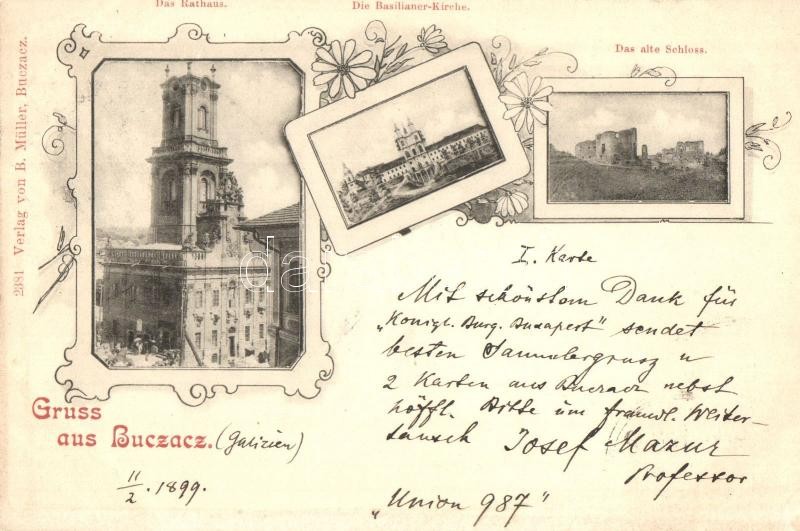 Das Rathaus.
Die Basilianer-Kirche.
Das alte Schloss.
2381 Verlag von B. Müller, Buczacz.
I. Karte
Mit schönstem Dank für
„Königl. Burg. Budapest" sendet
besten Sammlergruss u
2 Karten aus Buczacz nebst
höffl. Bitte um freundl. Weiter-
tausch Josef Mazur
Professor
"Union 987"
Gruss
aus Buczacz. (Galizien)
11/2. 1899.